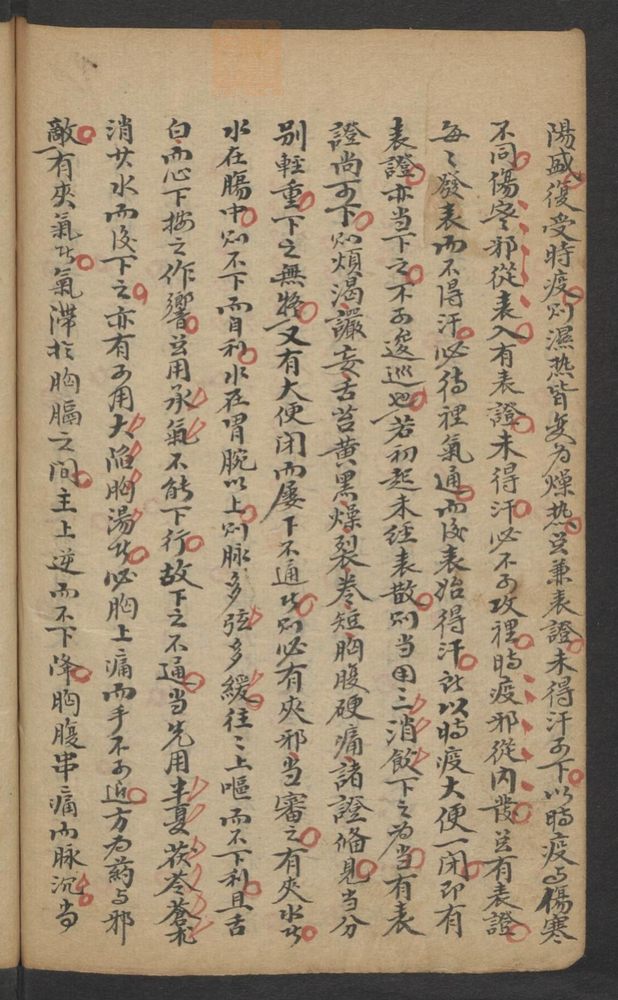 陽盛復受時疫則濕熱皆变为燥熱並兼表證未得汗可下以時疫与傷寒
不同傷寒邪從表入有表證未得汗必不可攻裡時疫邪從内發並有表證
每〻發表而不得汗必待裡氣通而後表始得汗所以時疫大便一闭即有
表證亦当下之不可逡巡也若初起未经表散則当用三消飲下之為当有表
證尚可下則煩渴讝妄舌苔黄黑燥裂卷短胸腹硬痛諸證備見当分
别輕重下之無疑又有大便闭而屢下不通者則必有夾邪当審之有夾水者
水在腸中則不下而自利水在胃脘以上則脉多弦多緩往〻上嘔而不下利且舌
白而心下按之作響並用承氣不能下行故下之不通当先用半夏茯苓蒼朮
消其水而後下之亦有可用大陷胸湯者必胸上痛而手不可近方为药与邪
敵有夾氣者氣滯於胸膈之间主上逆而不下降胸腹串痛而脉沉当